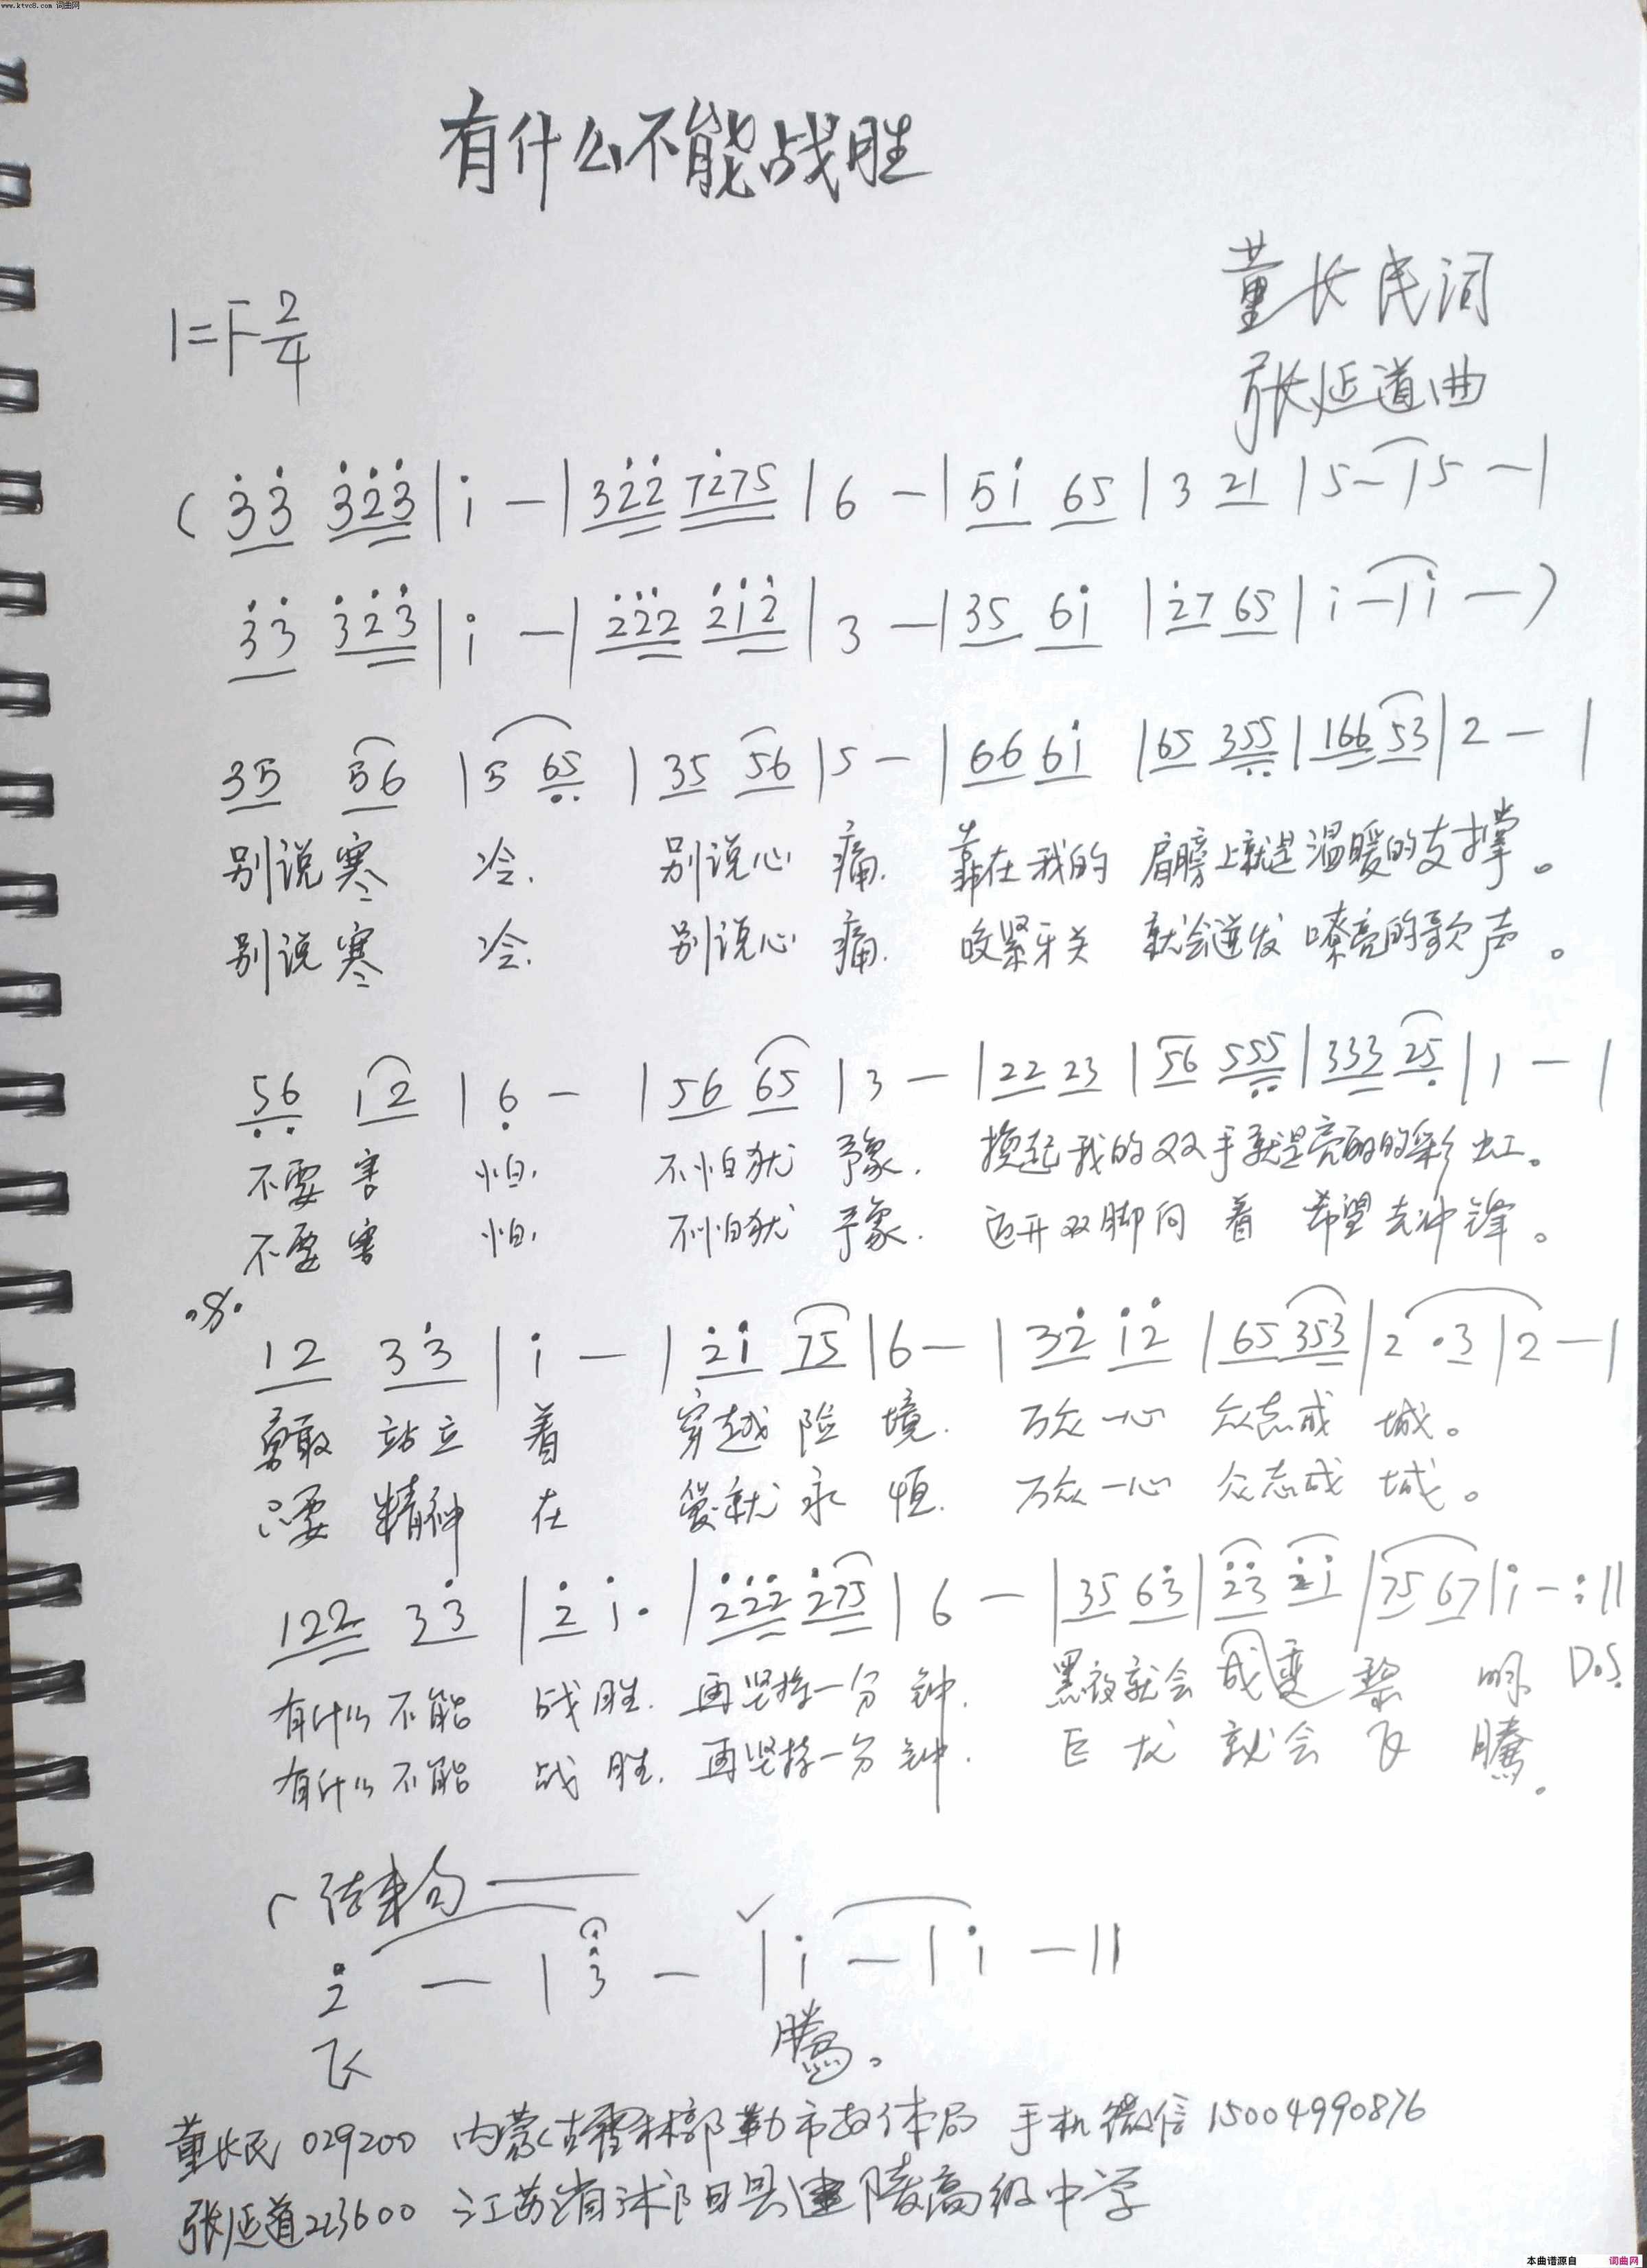 www.ktvc8.com 词曲网
有什么不能战胜
董长民词
1=F 2/4
张延道曲
( 3̇3̇ 3̇2̇3̇ | i̇ — | 32̇2̇ 72̇75 | 6 — | 5i̇ 65 | 3 21 | 5 — | 5 — |
3̇3̇ 3̇2̇3̇ | i̇ — | 2̇2̇2̇ 2̇i̇2̇ | 3 — | 35 6i̇ | 2̇7 65 | i̇ — | i̇ — )
35 56 | 5 6̣5̣ | 35 56 | 5 — | 66 6i̇ | 65 35̣5̣ | 166 53 | 2 — |
别说寒 冷. 别说心 痛. 靠在我的 肩膀上就是温暖的支撑。
别说寒 冷. 别说心 痛. 咬紧牙关 就会迸发 嘹亮的歌声。
5̣6̣ 12 | 6̣ — | 56 65 | 3 — | 22 23 | 56 55̣5̣ | 333 25̣ | 1 — |
不要害 怕. 不怕犹 豫. 挽起我的双手就是亮丽的彩虹。
不要害 怕. 不怕犹 豫. 迈开双脚向 着 希望去冲锋。
𝄋
12 33̇ | i̇ — | 2̇i̇ 75 | 6 — | 32̇ i̇2̇ | 65 353 | 2 ·3 | 2 — |
勇敢 站立 着 穿越 险 境. 万众一心 众志成 城。
只要 精神 在 爱就 永 恒. 万众一心 众志成 城。
122 33̇ | 2̇ i̇· | 2̇2̇2̇ 2̇75 | 6 — | 35 63̇ | 2̇3̇ 2̇i̇ | 75 67 | i̇ — :||
有什么不能 战胜. 再坚持一分 钟. 黑夜就会 成变 黎 明 D.S.
有什么不能 战胜. 再坚持一分 钟. 巨龙 就会 飞 腾.
结束句
2̇ — | 3̇ — | i̇ — | i̇ — ||
飞 腾。
董长民 029200 内蒙古霍林郭勒市教体局 手机微信 15004990876
张延道 223600 江苏省沭阳县建陵高级中学
本曲谱源自 词曲网